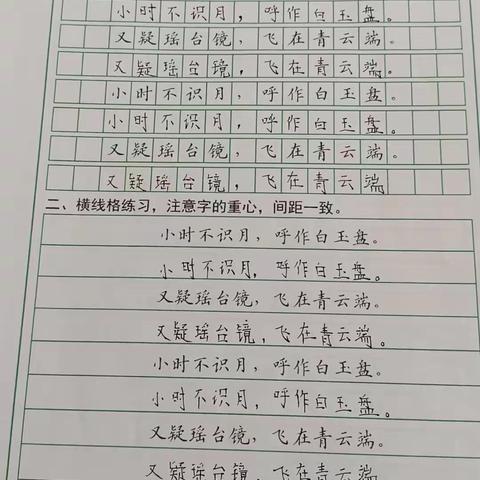 小时不识月，呼作白玉盘。
又疑瑶台镜，飞在青云端。
又疑瑶台镜，飞在青云端。
小时不识月，呼作白玉盘。
小时不识月，呼作白玉盘。
又疑瑶台镜，飞在青云端。
又疑瑶台镜，飞在青云端
二、横线格练习，注意字的重心，间距一致。
小时不识月，呼作白玉盘。
小时不识月，呼作白玉盘。
又疑瑶台镜，飞在青云端。
又疑瑶台镜，飞在青云端。
小时不识月，呼作白玉盘。
小时不识月，呼作白玉盘。
又疑瑶台镜，飞在青云端。
又疑瑶台镜，飞在青云端